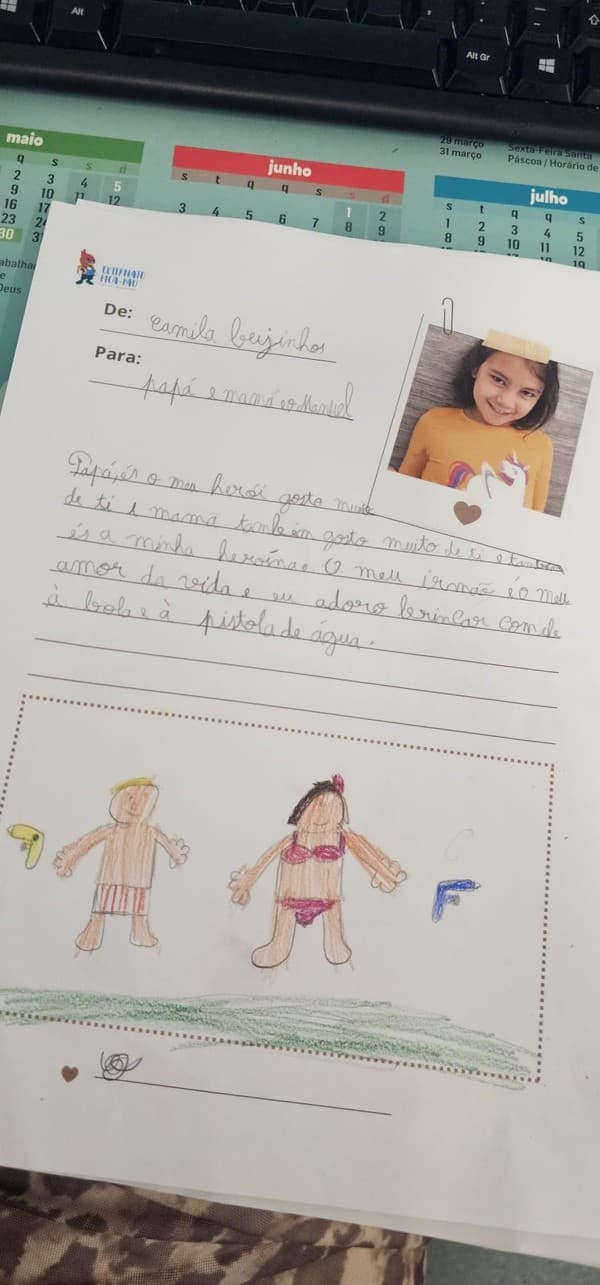 Alt
Alt Gr
maio
q s s d
2 3 4 5
9 10 11 12
16 17
23 2
30 3
junho
s t q q s s d
1 2
3 4 5 6 7 8 9
29 março Sexta-Feira Santa
31 março Páscoa / Horário de
julho
s t q q s
1 2 3 4 5
8 9 10 11 12
19
EXTERNATO
PICA-PAU
De: Camila beijinhos
Para:
papá e mamã e o Manuel
Papá, és o meu herói gosto muito
de ti e mamã também gosto muito de ti e também
és a minha heroína. O meu irmão é o meu
amor da vida e eu adoro brincar com ele
à bola e à pistola de água.